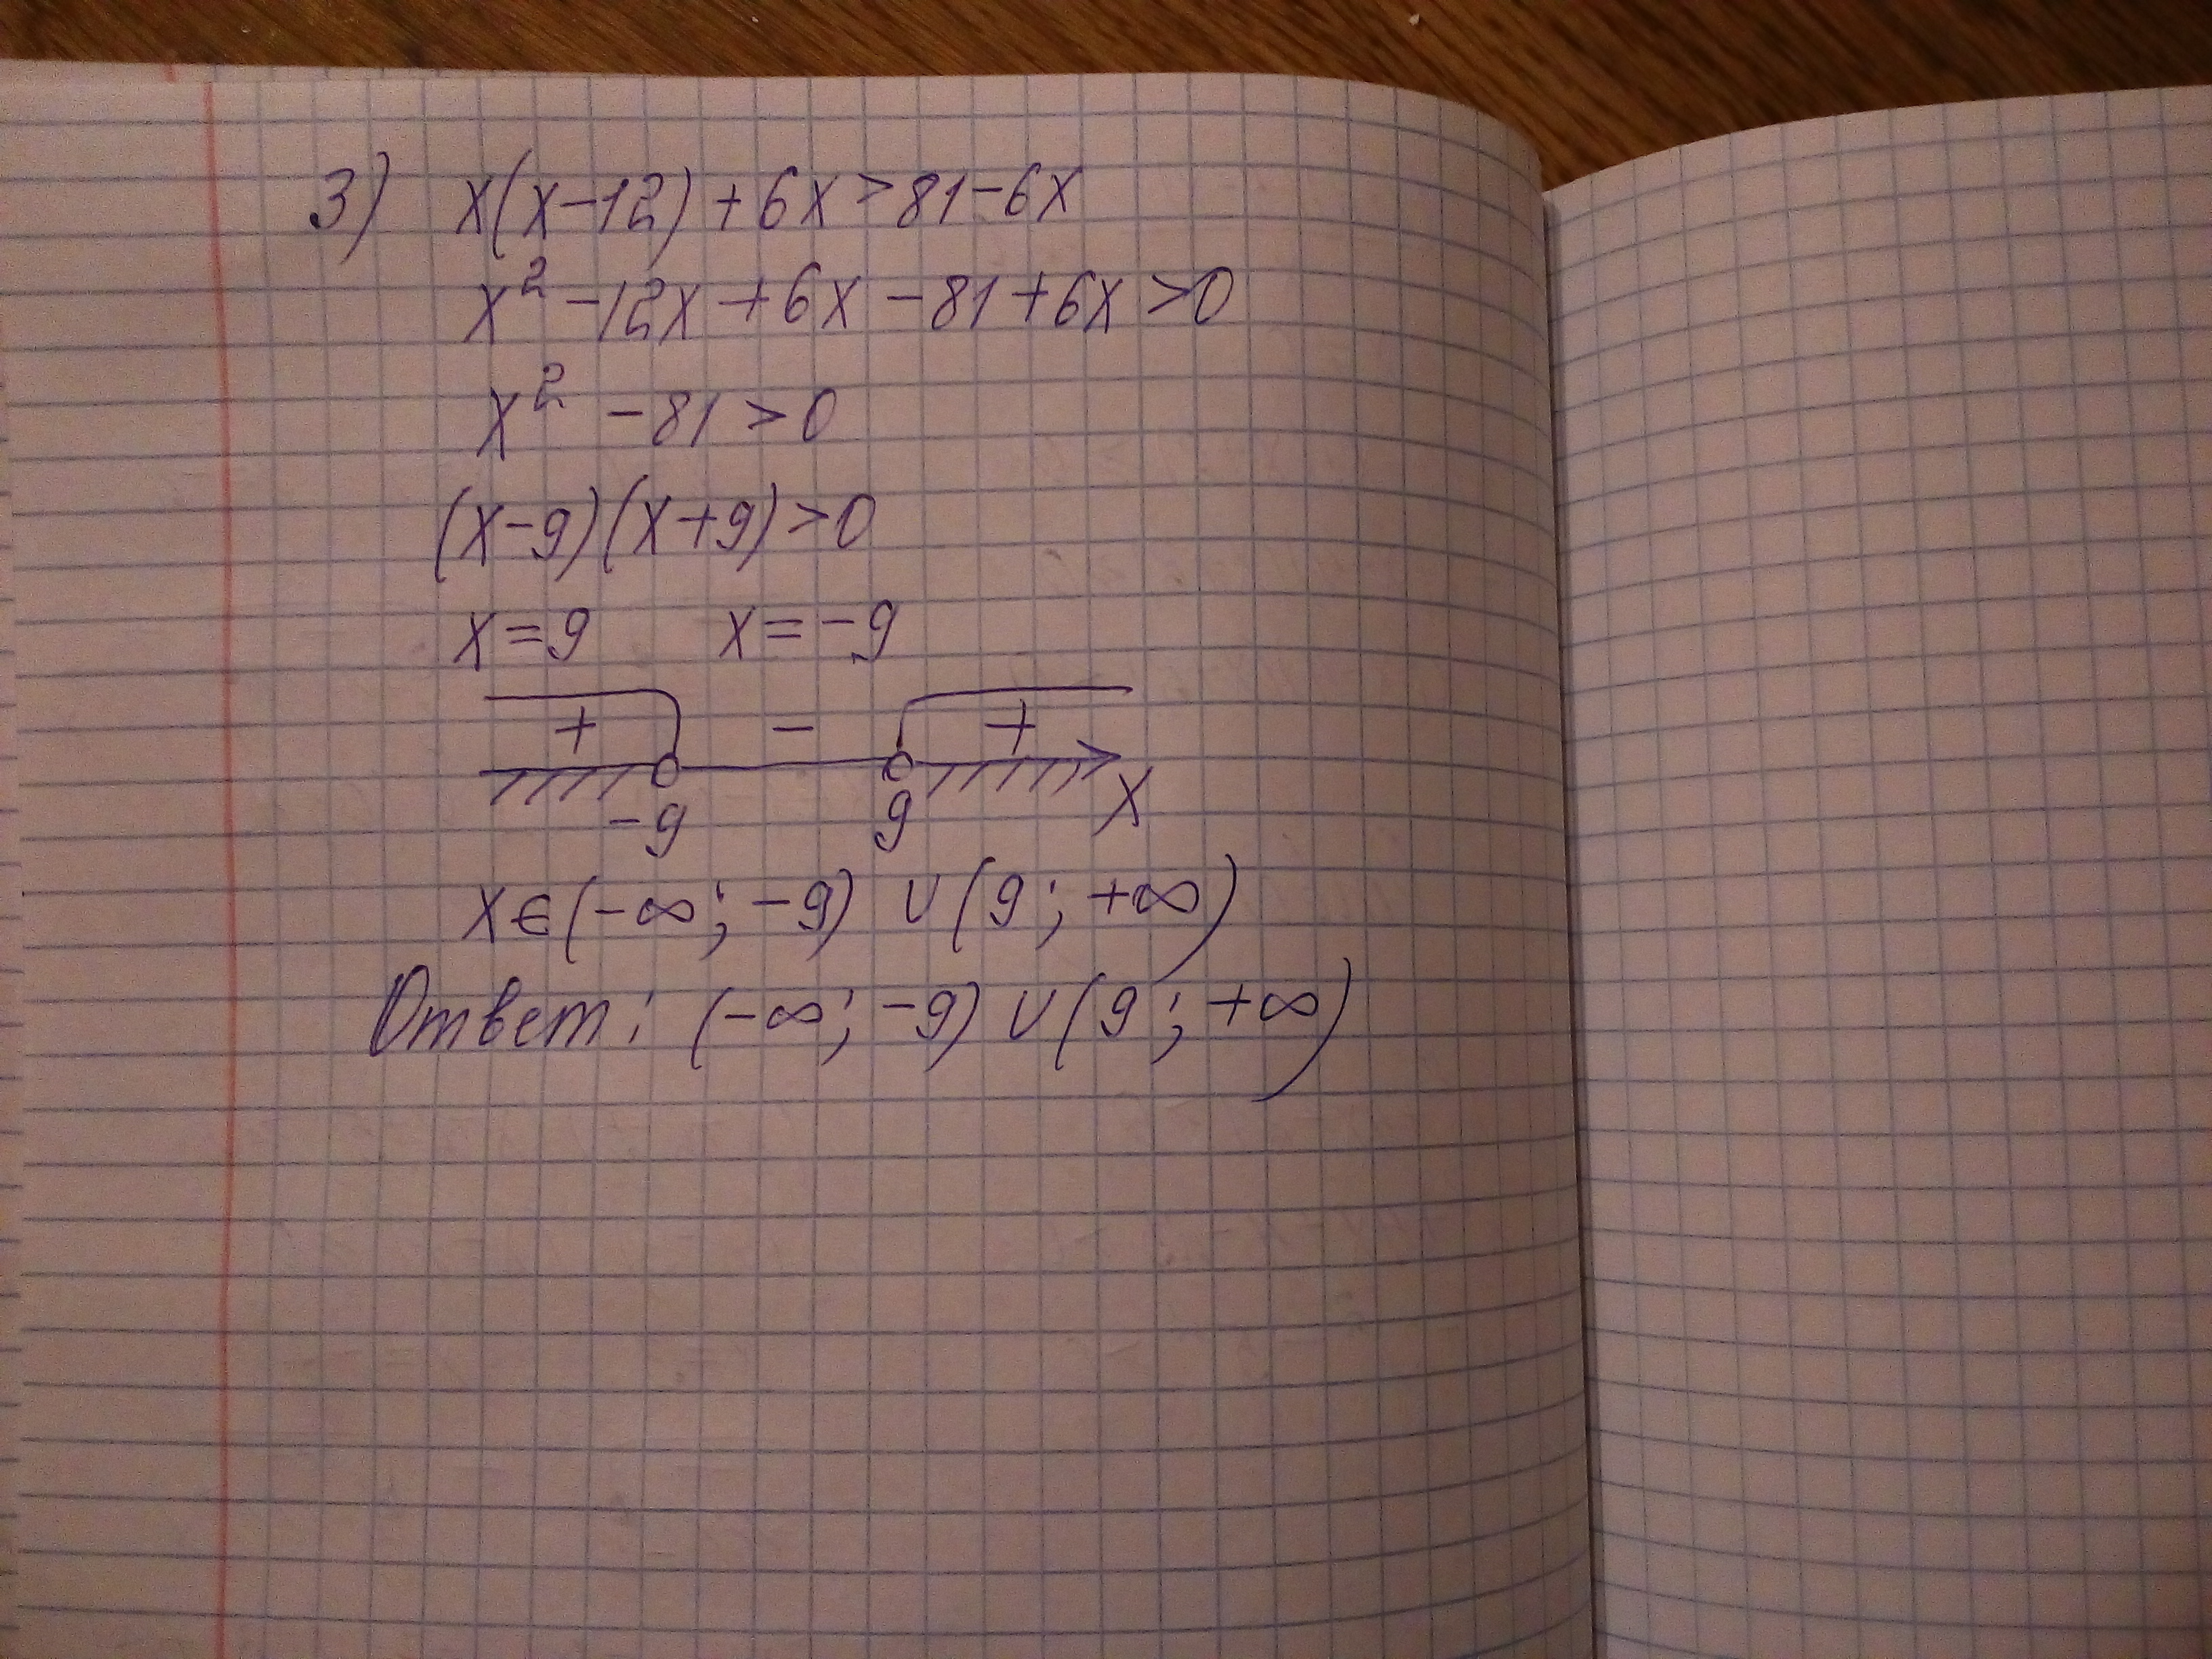 3) x(x-12)+6x>81-6x
x²-12x+6x-81+6x>0
x²-81>0
(x-9)(x+9)>0
x=9 x=-9
+ - +
-9 9 x
x∈(-∞;-9) ∪ (9;+∞)
Ответ: (-∞;-9) ∪ (9;+∞)